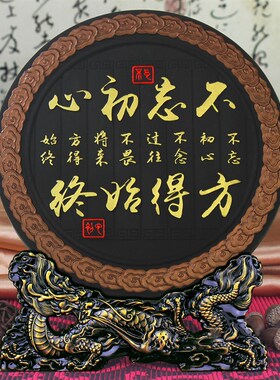 不忘初心
不忘
初心
不念
过往
不畏
将来
方得
始终
方得始终